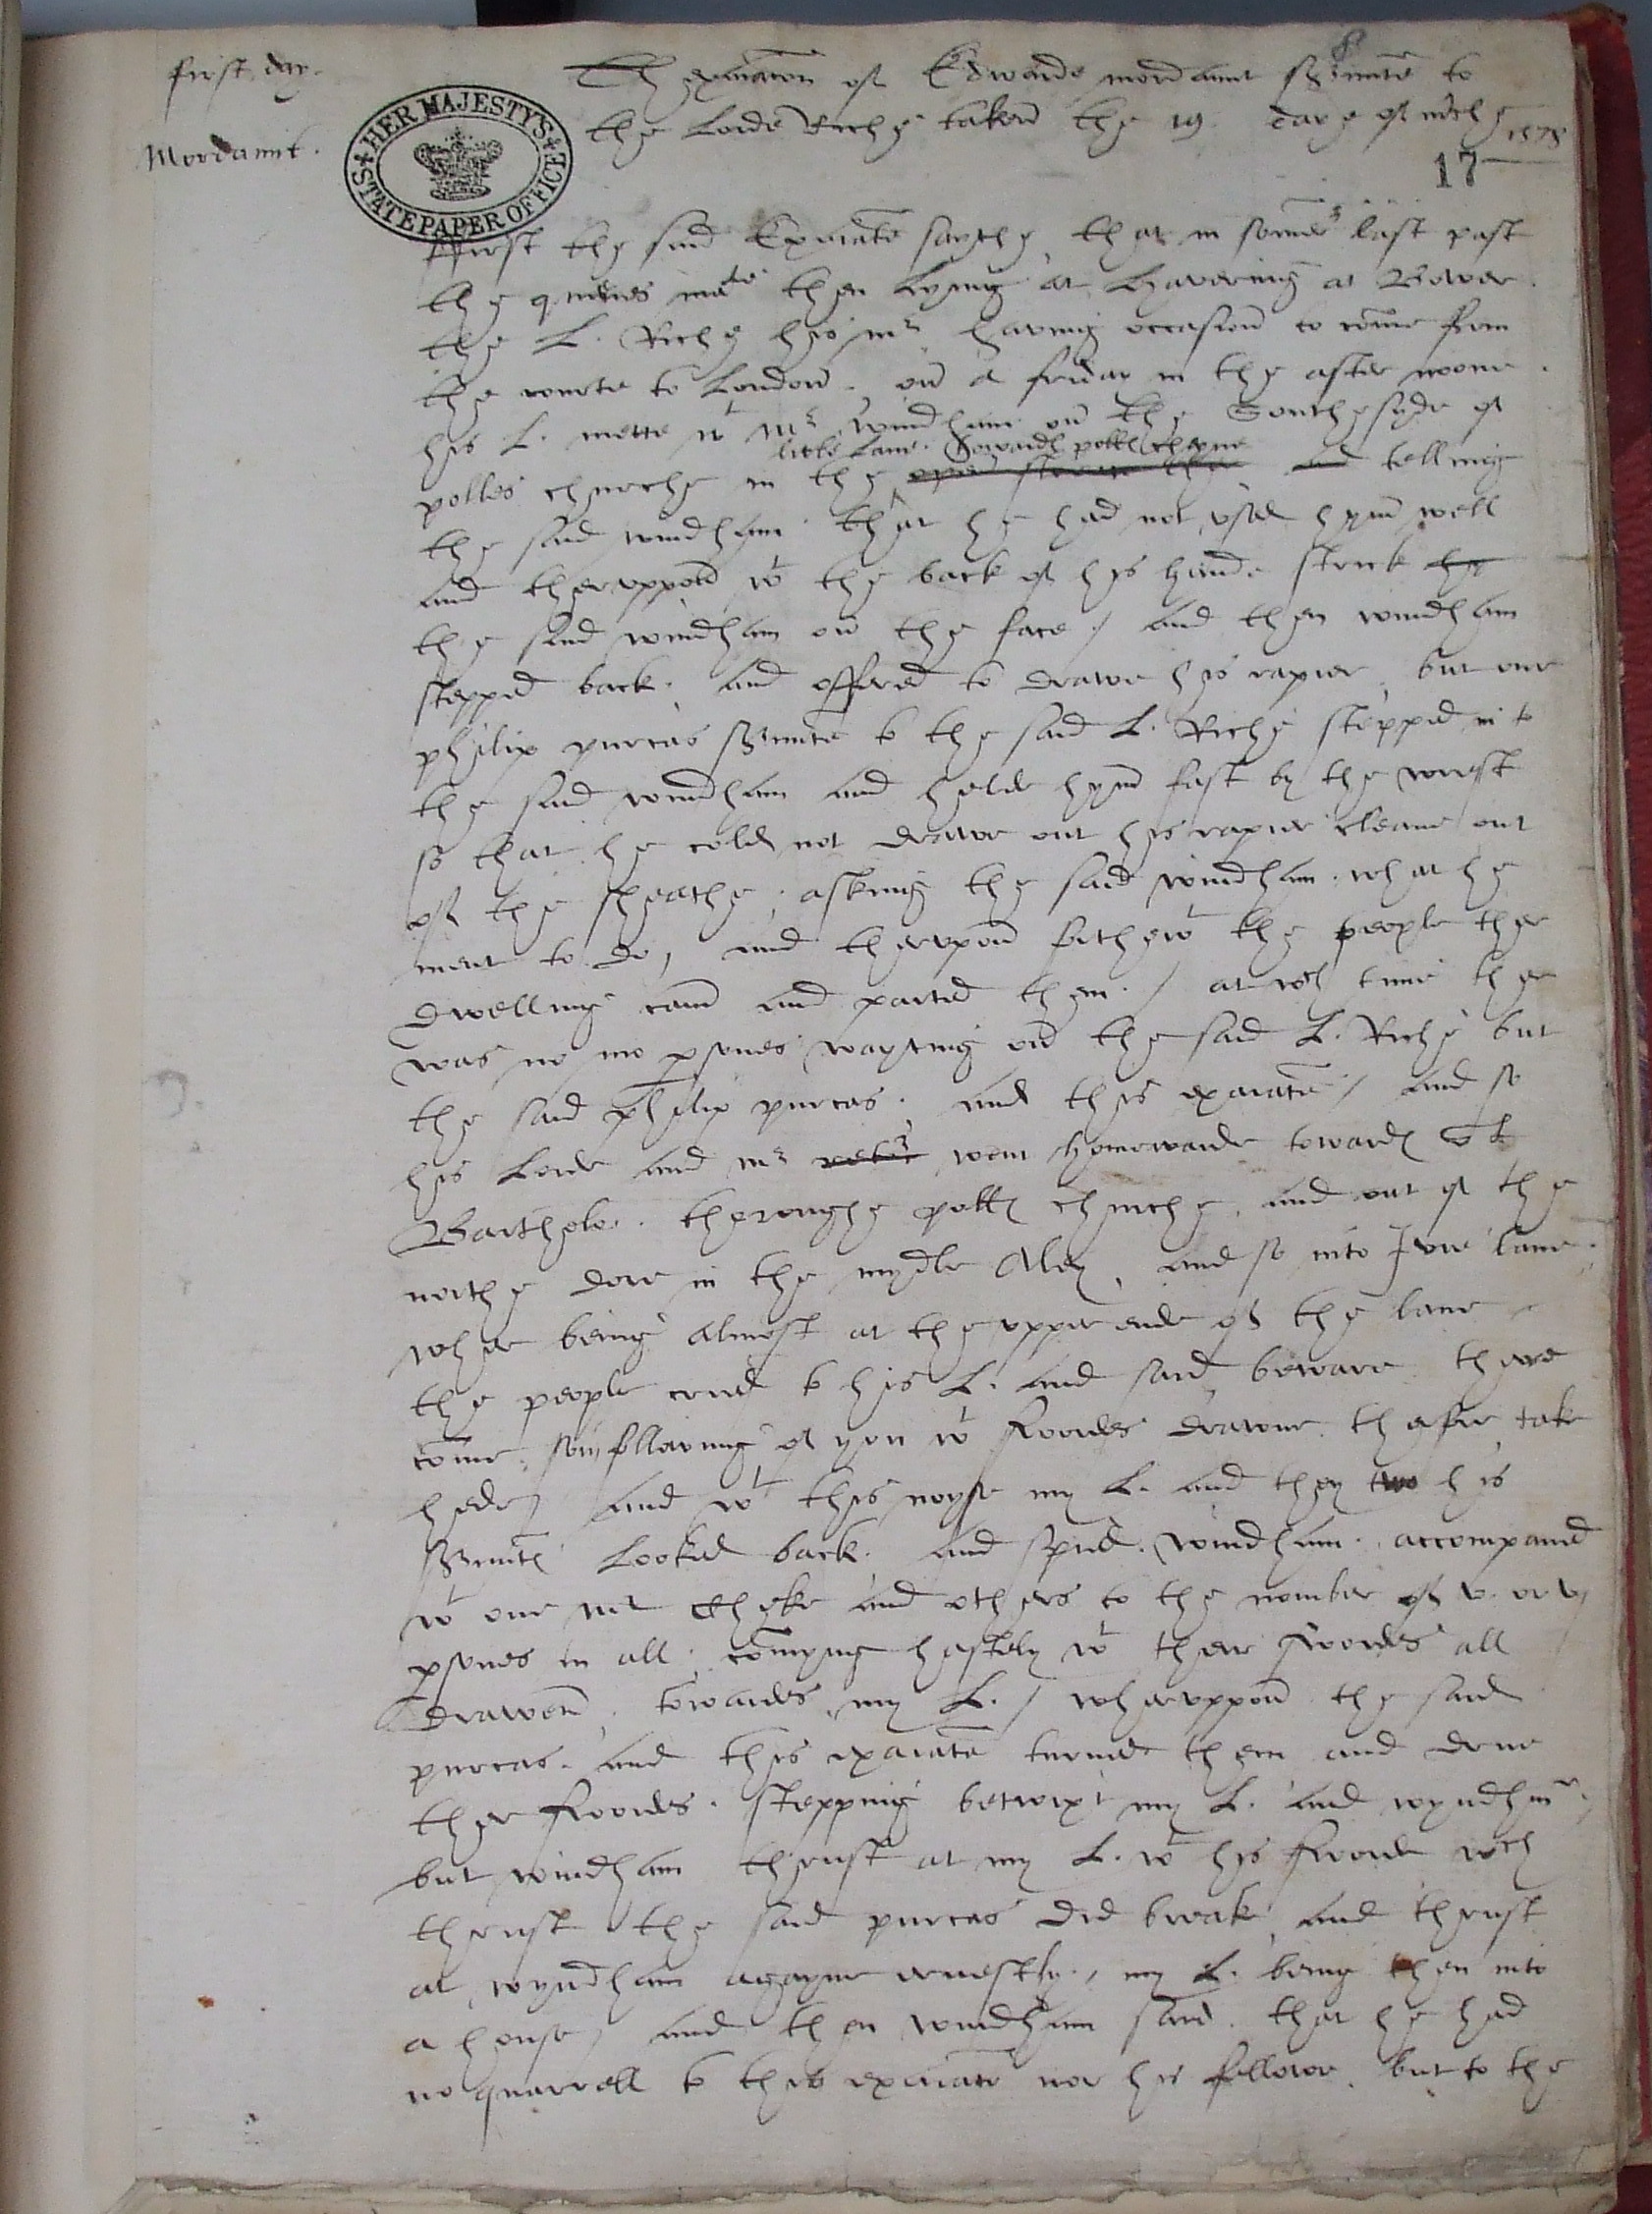 first day.
Mordamit.
HER MAJESTY'S
STATE PAPER OFFICE
Th examaton of Edwarde mordamt Srvnte to
the Lorde Riche taken the 19. daye of mche
1578
17
ffirst the said Examate saythe that in somer last past
the quenes matie then lying at Havering at Bower.
the L. Riche his mr having occasion to come from
the courte to London. on a friday in the after noone.
his L. mette wt Mr windham on the Southesyde of
litle lane. towardes polles cheyne
polles churche in the open streate the and telling
the said windham that he had not vsed hym well
and thervppon wt the back of his hande strick he
the said windham on the face / and then windham
stepped back. and offered to drawe his rapier, but one
philip purcas Srvnte to the said L. Riche stepped in to
the said windham and helde hym fast by the wrest
so that he colde not drawe out his rapier cleane out
of the sheathe, asking the said windham. what he
ment to do, and thervpon the people ther
dwelling came and parted them. / at wch time ther
was no mo psones wayting on the said L. Riche but
the said philip purcas. and this examate / and so
his Lorde and mr went homewarde towardes St
Bartholo.. thoroughe polles churche, and out of the
northe dore in the mydle Aley, and so into Ivie lane.
wher being almost at the vpper ende of the lane
the people cried to his L. and said beware there
come som following of you wt swordes drawne therfor take
hede / and wt this noyse my L. and they two his
Srvntes looked back. and spied windham. accompanied
wt one mr Cheke and others to the nomber of v. or vj
psones in all. comyng hastely wt their swordes all
drawen, towardes my L. / whervppon the said
purcas. and this examate turned them and drue
ther swordes. stepping betwixt my L. and wyndhm
but windham thrust at my L. wt his sworde wch
thrust the said purcas did break and thrust
at wyndham agayne ernestly., my L. being then into
a house / and then windham said. that he had
no quarrell to this examate nor his fellowe. but to the